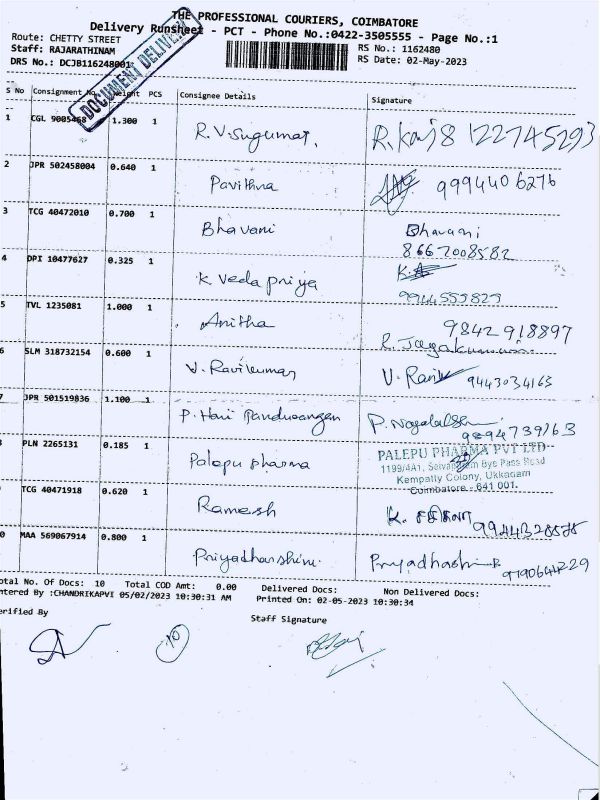 THE PROFESSIONAL COURIERS, COIMBATORE
Delivery Runsheet - PCT - Phone No.:0422-3505555 - Page No.:1
Route: CHETTY STREET
RS No.: 1162480
Staff: RAJARATHINAM
RS Date: 02-May-2023
DRS No.: DCJB116248001
DOCUMENT DELIVERY
S No Consignment No. Weight PCS Consignee Details Signature
1 CGL 9005468 1.300 1 R.V.Sugumar. 8122745293
2 JPR 502458004 0.640 1 Pavithra 9994406276
3 TCG 40472010 0.700 1 Bhavani Bhavani
8667008582
4 DPI 10477627 0.325 1 K Veda priya
9944559829
5 TVL 1235081 1.000 1 Anitha 9842918897
R. Jayakumar
6 SLM 318732154 0.600 1 V. Ravikumar V. Ravi 9443034163
7 JPR 501519836 1.100 1 P. Hari Pandurangan
9894739163
8 PLN 2265131 0.185 1 Palepu pharma
PALEPU PHARMA PVT LTD
1199/4A1, Selvapuram Bye Pass Road
Kempatty Colony, Ukkadam
Coimbatore - 641 001.
TCG 40471918 0.620 1 Ramesh K. 9944328585
0 MAA 569067914 0.800 1 Priyadharshini 9790644229
otal No. Of Docs: 10 Total COD Amt: 0.00 Delivered Docs: Non Delivered Docs:
ntered By :CHANDRIKAPVI 05/02/2023 10:30:31 AM Printed On: 02-05-2023 10:30:34
erified By
Staff Signature
10